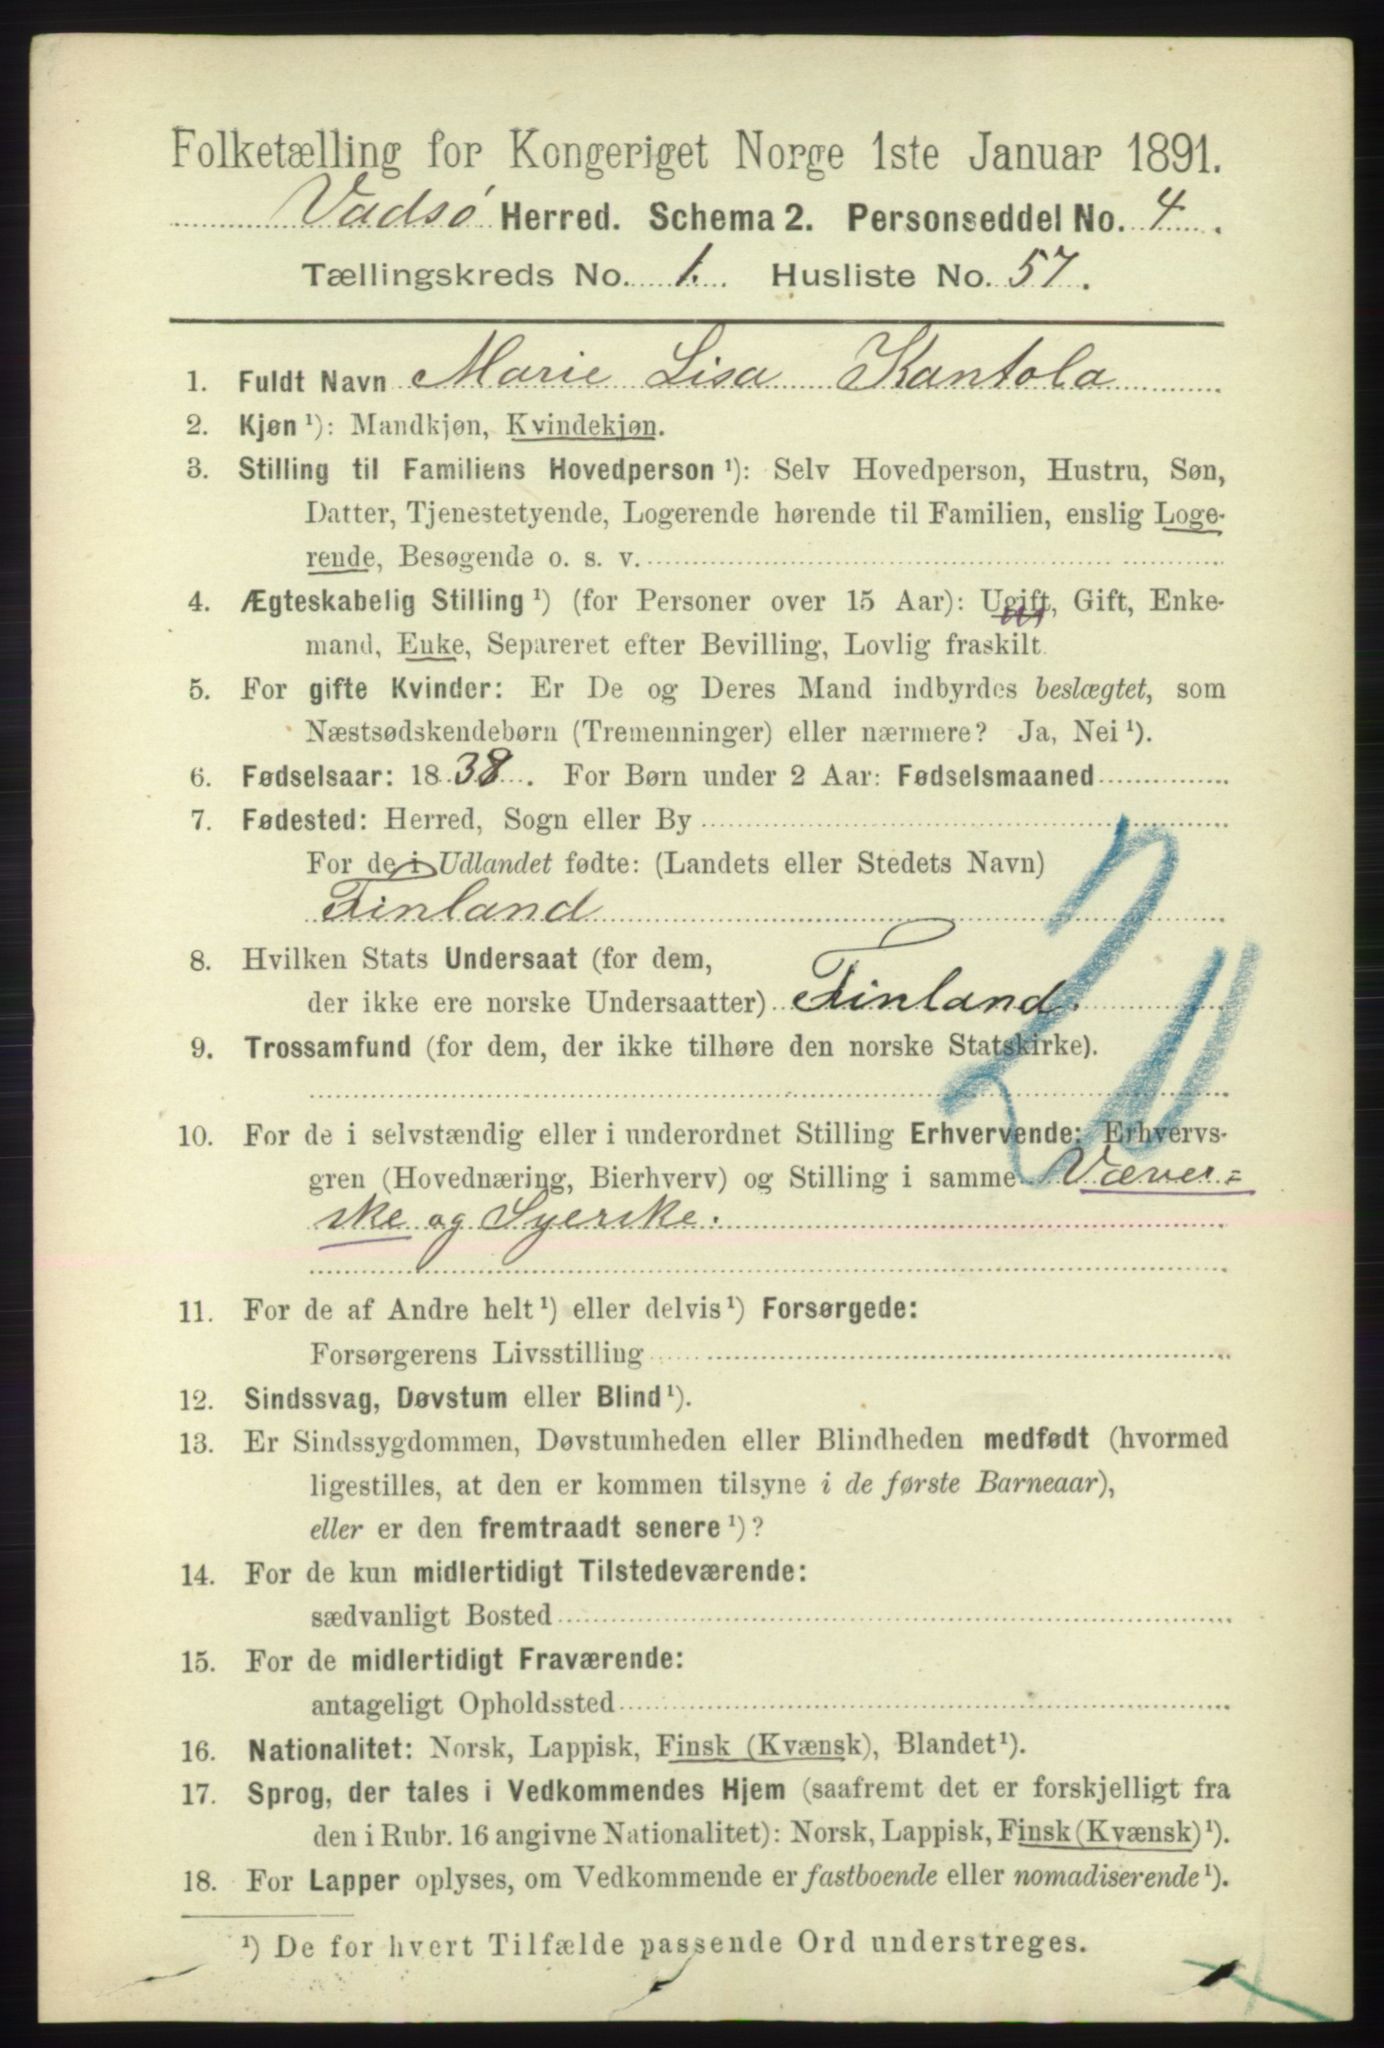 Folketælling for Kongeriget Norge 1ste Januar 1891.
Vadsø Herred. Schema 2. Personseddel No. 4.
Tællingskreds No. 1. Husliste No. 57.
1. Fuldt Navn Marie Lisa Kantola
2. Kjøn ¹): Mandkjøn, Kvindekjøn.
3. Stilling til Familiens Hovedperson ¹): Selv Hovedperson, Hustru, Søn,
Datter, Tjenestetyende, Logerende hørende til Familien, enslig Loge-
rende, Besøgende o. s. v.
4. Ægteskabelig Stilling ¹) (for Personer over 15 Aar): Ugift, Gift, Enke-
mand, Enke, Separeret efter Bevilling, Lovlig fraskilt.
5. For gifte Kvinder: Er De og Deres Mand indbyrdes beslægtet, som
Næstsødskendebørn (Tremenninger) eller nærmere? Ja, Nei ¹).
6. Fødselsaar: 1838. For Børn under 2 Aar: Fødselsmaaned
7. Fødested: Herred, Sogn eller By
For de i Udlandet fødte: (Landets eller Stedets Navn)
Finland
8. Hvilken Stats Undersaat (for dem,
der ikke ere norske Undersaatter) Finland.
9. Trossamfund (for dem, der ikke tilhøre den norske Statskirke).
20
10. For de i selvstændig eller i underordnet Stilling Erhvervende: Erhvervs-
gren (Hovednæring, Bierhverv) og Stilling i samme Væver=
ske og Syerske.
11. For de af Andre helt ¹) eller delvis ¹) Forsørgede:
Forsørgerens Livsstilling
12. Sindssvag, Døvstum eller Blind ¹).
13. Er Sindssygdommen, Døvstumheden eller Blindheden medfødt (hvormed
ligestilles, at den er kommen tilsyne i de første Barneaar),
eller er den fremtraadt senere ¹)?
14. For de kun midlertidigt Tilstedeværende:
sædvanligt Bosted
15. For de midlertidigt Fraværende:
antageligt Opholdssted
16. Nationalitet: Norsk, Lappisk, Finsk (Kvænsk), Blandet ¹).
17. Sprog, der tales i Vedkommendes Hjem (saafremt det er forskjelligt fra
den i Rubr. 16 angivne Nationalitet): Norsk, Lappisk, Finsk (Kvænsk) ¹).
18. For Lapper oplyses, om Vedkommende er fastboende eller nomadiserende ¹).
¹) De for hvert Tilfælde passende Ord understreges.